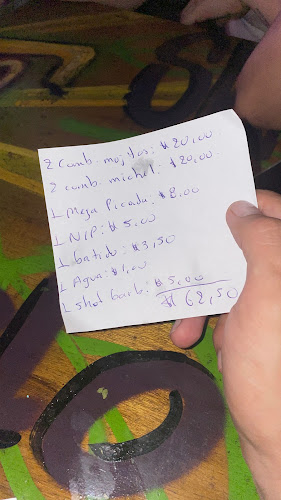 2 Comb. mojitos: $20,00
2 comb. michel: $20,00
1 Mega Picada: $8,00
1 NIP: $5,00
1 batido: $3,50
1 Agua: $1,00
1 Shot Garib: $5,00
$62,50